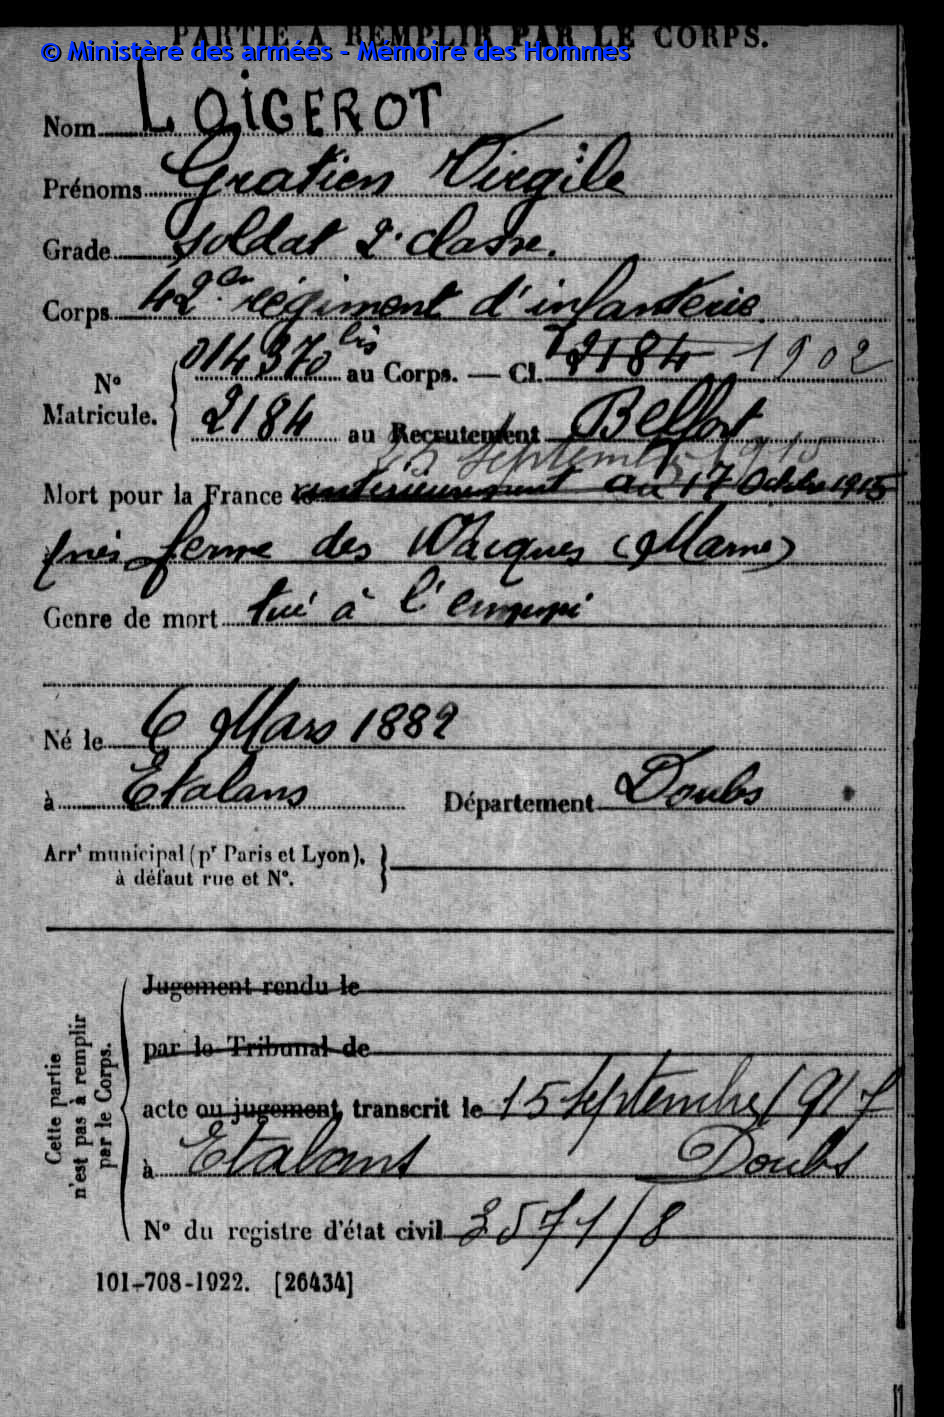 PARTIE A REMPLIR PAR LE CORPS.
© Ministère des armées - Mémoire des Hommes
Nom LOIGEROT
Prénoms Gratien Virgile
Grade soldat 2e classe.
Corps 42e régiment d'infanterie.
014370 bis au Corps. — Cl. 2184 1902
N° Matricule.
2184 au Recrutement Belfort
25 septembre 1915
Mort pour la France antérieurement au 17 Octobre 1915
près ferme des Wacques (Marne)
Genre de mort tué à l'ennemi
Né le 6 Mars 1882
à Etalans Département Doubs
Arrt municipal (pr Paris et Lyon),
à défaut rue et N°.
Cette partie n'est pas à remplir par le Corps.
Jugement rendu le
par le Tribunal de
acte ou jugement transcrit le 15 septembre 1917
à Etalans Doubs
N° du registre d'état civil 3571/8
101-708-1922. [26434]